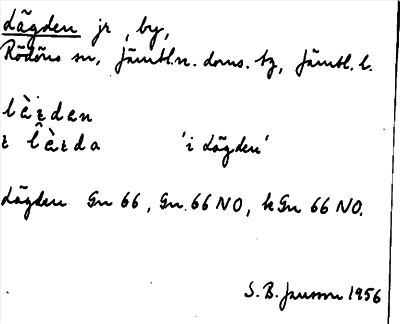 Lägden jr, by,
Rödöns sn, Jämtl.n. doms. tg, Jämtl. l.
'i Lägden'
Lägden Gn 66, Gn. 66 NO, kGn 66 NO.
S. B. Jansson 1956